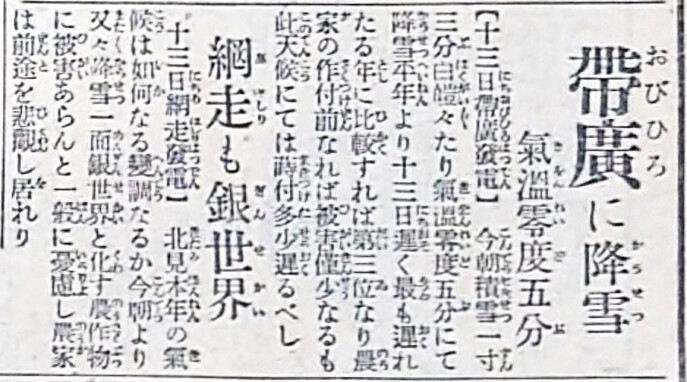 帶廣に降雪
氣溫零度五分
【十三日帶廣發電】 今朝積雪一寸
三分白皚々たり氣溫零度五分にて
降雪平年より十三日遲く最も遲れ
たる年に比較すれば第三位なり農
家の作付前なれば被害僅少なるも
此天候にては蒔付多少遲るべし
網走も銀世界
十三日網走發電】 北見本年の氣
候は如何なる變調なるか今朝より
又々降雪一面銀世界と化す農作物
に被害あらんと一般に憂慮し農家
は前途を悲觀し居れり